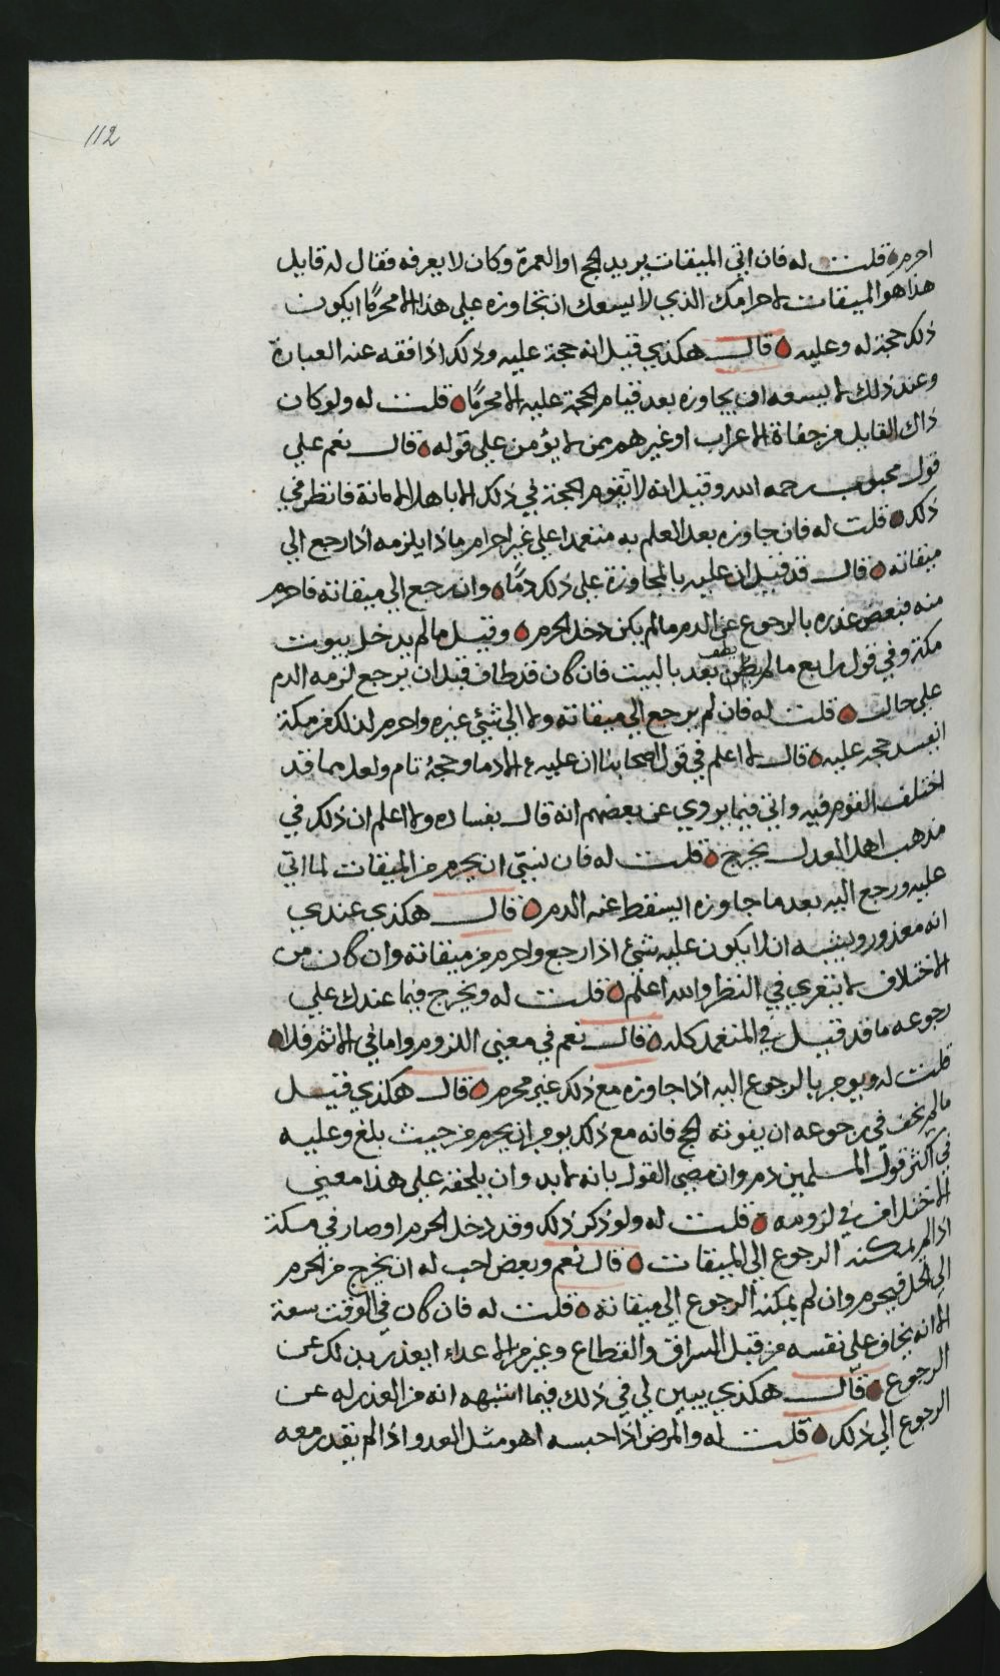 112
احرم قلت له فان اتى الميقات يريد الحج او العمرة وكان لا يعرفه فقال له قايل
هذا هو الميقات لاحرامك الذي لا يسعك ان تجاوزه علي هذا الا محرمًا ايكون
ذلك حجة له وعليه قال هكذي قيل انه حجة عليه وذلك اذا فقه عنه العبارة
وعند ذلك لا يسعه ان يجاوزه بعد قيام الحجة عليه الا محرمًا قلت له ولو كان
ذاك القايل من جفاة الاعراب او غيرهم من لا يؤمن علي قوله قال نعم علي
قول محبوب رحمه الله وقيل انه لا تقوم الحجة في ذلك الا باهل الامانة فانظر في
ذلك قلت له فان جاوزه بعد العلم به متعمدا علي غير احرام ماذا يلزمه اذا رجع الي
ميقاته قال قد قيل ان عليه بالمجاوزة علي ذلك دمًا وان رجع الي ميقاته فاحرم
منه فبعض عذره بالرجوع عن الدم ما لم يكن دخل الحرم وقيل ما لم يدخل بيوت
مكة وفي قول رابع ما لم يطف بعد بالبيت فان كان قد طاف قبل ان يرجع لزمه الدم
علي حال قلت له فان لم يرجع الي ميقاته ولا الي شيئ غيره واحرم لذلك من مكة
ايفسد حجه عليه قال لا اعلم في قول اصحابنا ان عليه الا دما وحجه تام ولعل مما قد
اختلف القوم فيه واني فيما يروي عن بعضهم انه قال بفساده ولا اعلم ان ذلك في
مذهب اهل العدل يخرج قلت له فان نسي ان يحرم من الميقات لما اتي
عليه ورجع اليه بعد ما جاوزه ايسقط عنه الدم قال هكذي عندي
انه معذور ويشبه ان لا يكون عليه شئ اذا رجع واحرم من ميقاته وان كان من
الاختلاف لا يتعري في النظر والله اعلم قلت له ويخرج فيما عندك علي
رجوعه ما قد قيل في المتعمد كله قال نعم في معني اللزوم واما في الاثم فلا
قلت له ويومر بالرجوع اليه اذا جاوزه مع ذلك غير محرم قال هكذي قيل
ما لم يخف في رجوعه ان يفوته الحج فانه مع ذلك يومر ان يحرم من حيث بلغ وعليه
في اكثر قول المسلمين دم وان مضي القول بانه لابد وان يلحقه علي هذا معني
الاختلاف في لزومه قلت له ولو ذكر ذلك وقد دخل الحرم او صار في مكة
اذا لم يمكنه الرجوع الي الميقات قال نعم وبعض احب له ان يخرج من الحرم
الي الحل فيحرم وان لم يمكنه الرجوع الي ميقاته قلت له فان كان في الوقت سعة
الا انه يخاف علي نفسه من قبل السراق والقطاع وغيرمن الاعداء ايعذر بذلك عن
الرجوع قال هكذي يبين لي في ذلك فيما اشبهه انه من العذر له عن
الرجوع الي ذلك قلت له والمرض اذا حبسه اهو مثل العدو اذا لم يقدر معه